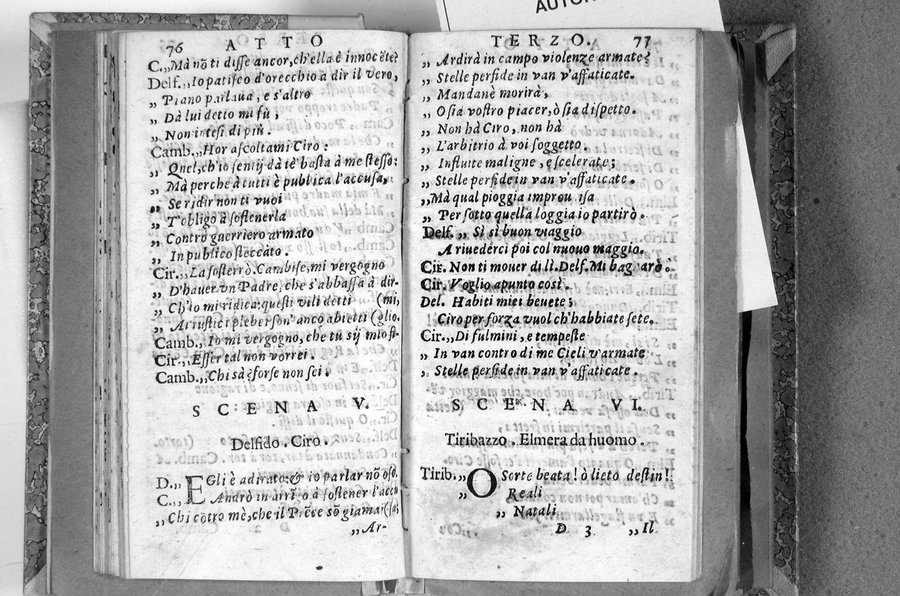 AUTOR
76 ATTO
C.,,Mà nõ ti disse ancor, ch'ella è innocẽte?
Delf.,,Io patisco d'orecchio a dir il vero,
,, Piano parlaua, e s'altro
,, Da lui detto mi fù,
,, Non intesi di più.
Camb.,,Hor ascoltami Ciro:
,, Quel, ch'io sentij da te basta à me stesso:
,, Mà perche à tutti è publica l'accusa,
,, Se ridir non ti vuoi
,, T'obligo à sostenerla
,, Contro guerriero armato
,, In publico steccato.
Cir.,,La sosterrò. Cambise, mi vergogno
,, D'hauer vn Padre, che s'abbassa à dir-
,, Ch'io mi ridica: questi vili detti (mi,
,, A i rustici plebei son' anco abietti (glio.
Camb.,,Io mi vergogno, che tu sij mio fi-
Cir.,,Esser tal non vorrei.
Camb.,,Chi sà? forse non sei.
SCENA V.
Delfido. Ciro.
D.,,EGli è adirato: & io parlar nõ oso.
C.,, Andrò in
à sostener l'accu
,,Chi cõtro mè, che il
giamai
,,Ar-
TERZO. 77
,, Ardirà in campo violenze armate?
,, Stelle perfide in van v'affaticate.
,, Mandanè morirà,
,, O sia vostro piacer, ò sia dispetto.
,, Non hà Ciro, non hà
,, L'arbitrio à voi soggetto.
,, Influite maligne, e scelerate;
,, Stelle perfide in van v'affaticate.
,,Mà qual pioggia improuisa
,, Per sotto quella loggia io partirò.
Delf.,, Sì sì buon viaggio
A riuederci poi col nuouo maggio.
Cir. Non ti mouer di lì. Delf. Mi bagnarò.
Cir. Voglio apunto così.
Del. Habiti miei beuete;
Ciro per forza vuol ch'habbiate sete.
Cir.,,Di fulmini, e tempeste
,, In van contro di me Cieli v'armate
,, Stelle perfide in van v'affaticate.
SCENA VI.
Tiribazzo. Elmera da huomo.
Tirib.,,O Sorte beata! ò lieto destin!
,, Reali
,, Natali
D 3 ,,Il